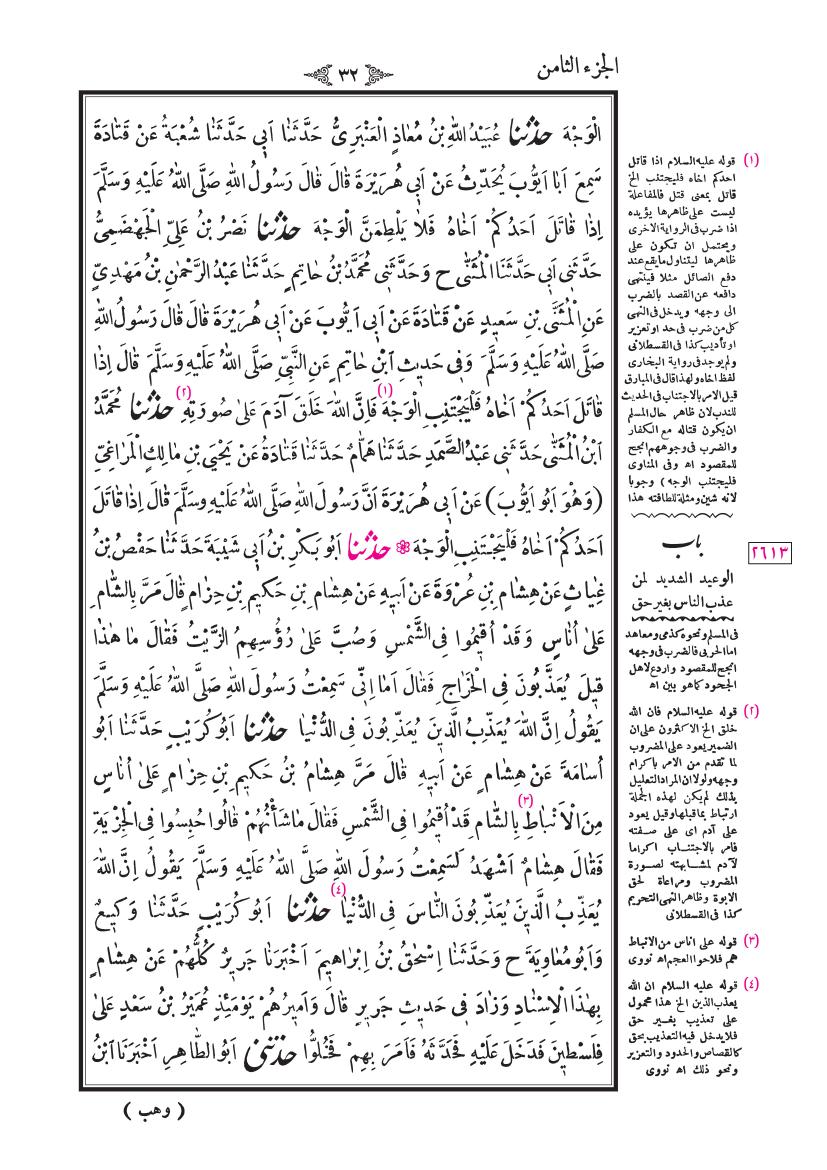 الجزء الثامن
٣٢
الْوَجْهَ حَدَّثَنَا عُبَيْدُ اللّٰهِ بْنُ مُعَاذٍ الْعَنْبَرِىُّ حَدَّثَنَا اَبِى حَدَّثَنَا شُعْبَةُ عَنْ قَتَادَةَ
سَمِعَ اَبَا اَيُّوبَ يُحَدِّثُ عَنْ اَبِى هُرَيْرَةَ قَالَ قَالَ رَسُولُ اللّٰهِ صَلَّى اللّٰهُ عَلَيْهِ وَسَلَّمَ
اِذَا قَاتَلَ اَحَدُكُمْ اَخَاهُ فَلَا يَلْطِمَنَّ الْوَجْهَ حَدَّثَنَا نَصْرُ بْنُ عَلِىٍّ الْجَهْضَمِىُّ
حَدَّثَنِى اَبِى حَدَّثَنَا الْمُثَنَّى ح وَحَدَّثَنِى مُحَمَّدُ بْنُ حَاتِمٍ حَدَّثَنَا عَبْدُ الرَّحْمٰنِ بْنُ مَهْدِىٍّ
عَنِ الْمُثَنَّى بْنِ سَعِيدٍ عَنْ قَتَادَةَ عَنْ اَبِى اَيُّوبَ عَنْ اَبِى هُرَيْرَةَ قَالَ قَالَ رَسُولُ اللّٰهِ
صَلَّى اللّٰهُ عَلَيْهِ وَسَلَّمَ وَفِى حَدِيثِ ابْنِ حَاتِمٍ عَنِ النَّبِىِّ صَلَّى اللّٰهُ عَلَيْهِ وَسَلَّمَ قَالَ اِذَا
قَاتَلَ اَحَدُكُمْ اَخَاهُ فَلْيَجْتَنِبِ الْوَجْهَ (١) فَاِنَّ اللّٰهَ خَلَقَ آدَمَ عَلَى صُورَتِهِ (٢) حَدَّثَنَا مُحَمَّدُ
ابْنُ الْمُثَنَّى حَدَّثَنِى عَبْدُ الصَّمَدِ حَدَّثَنَا هَمَّامٌ حَدَّثَنَا قَتَادَةُ عَنْ يَحْيَى بْنِ مَالِكٍ الْمَرَاغِىِّ
(وَهُوَ اَبُو اَيُّوبَ) عَنْ اَبِى هُرَيْرَةَ اَنَّ رَسُولَ اللّٰهِ صَلَّى اللّٰهُ عَلَيْهِ وَسَلَّمَ قَالَ اِذَا قَاتَلَ
اَحَدُكُمْ اَخَاهُ فَلْيَجْتَنِبِ الْوَجْهَ ❁ حَدَّثَنَا اَبُو بَكْرِ بْنُ اَبِى شَيْبَةَ حَدَّثَنَا حَفْصُ بْنُ
غِيَاثٍ عَنْ هِشَامِ بْنِ عُرْوَةَ عَنْ اَبِيهِ عَنْ هِشَامِ بْنِ حَكِيمِ بْنِ حِزَامٍ قَالَ مَرَّ بِالشَّامِ
عَلَى اُنَاسٍ وَقَدْ اُقِيمُوا فِى الشَّمْسِ وَصُبَّ عَلَى رُؤُسِهِمُ الزَّيْتُ فَقَالَ مَا هٰذَا
قِيلَ يُعَذَّبُونَ فِى الْخَرَاجِ فَقَالَ اَمَا اِنِّى سَمِعْتُ رَسُولَ اللّٰهِ صَلَّى اللّٰهُ عَلَيْهِ وَسَلَّمَ
يَقُولُ اِنَّ اللّٰهَ يُعَذِّبُ الَّذِينَ يُعَذِّبُونَ فِى الدُّنْيَا حَدَّثَنَا اَبُو كُرَيْبٍ حَدَّثَنَا اَبُو
اُسَامَةَ عَنْ هِشَامٍ عَنْ اَبِيهِ قَالَ مَرَّ هِشَامُ بْنُ حَكِيمِ بْنِ حِزَامٍ عَلَى اُنَاسٍ
مِنَ الْاَنْبَاطِ (٣) بِالشَّامِ قَدْ اُقِيمُوا فِى الشَّمْسِ فَقَالَ مَا شَأْنُهُمْ قَالُوا حُبِسُوا فِى الْجِزْيَةِ
فَقَالَ هِشَامٌ اَشْهَدُ لَسَمِعْتُ رَسُولَ اللّٰهِ صَلَّى اللّٰهُ عَلَيْهِ وَسَلَّمَ يَقُولُ اِنَّ اللّٰهَ
يُعَذِّبُ الَّذِينَ يُعَذِّبُونَ النَّاسَ فِى الدُّنْيَا (٤) حَدَّثَنَا اَبُو كُرَيْبٍ حَدَّثَنَا وَكِيعٌ
وَاَبُو مُعَاوِيَةَ ح وَحَدَّثَنَا اِسْحٰقُ بْنُ اِبْرَاهِيمَ اَخْبَرَنَا جَرِيرٌ كُلُّهُمْ عَنْ هِشَامٍ
بِهٰذَا الْاِسْنَادِ وَزَادَ فِى حَدِيثِ جَرِيرٍ قَالَ وَاَمِيرُهُمْ يَوْمَئِذٍ عُمَيْرُ بْنُ سَعْدٍ عَلَى
فِلَسْطِينَ فَدَخَلَ عَلَيْهِ فَحَدَّثَهُ فَاَمَرَ بِهِمْ فَخُلُّوا حَدَّثَنِى اَبُو الطَّاهِرِ اَخْبَرَنَا ابْنُ
( وهب )
(١) قوله عليه السلام اذا قاتل
احدكم اخاه فليجتنب الخ
قاتل بمعنى قتل فالمفاعلة
ليست على ظاهرها يؤيده
اذا ضرب فى الرواية الاخرى
ويحتمل ان تكون على
ظاهرها ليتناول ما يقع عند
دفع الصائل مثلا فينتهى
دافعه عن القصد بالضرب
الى وجهه ويدخل فى النهى
كل من ضرب فى حد او تعزير
او تأديب كذا فى القسطلانى
ولم يوجد فى رواية البخارى
لفظ اخاه ولهذا قال فى المبارق
قيل الامر بالاجتناب فى الحديث
للندب لان ظاهر حال المسلم
ان يكون قتاله مع الكفار
والضرب فى وجوههم انجح
للمقصود اه وفى المناوى
فليجتنب الوجه ) وجوبا
لانه شين ومثلة للطافته هذا
باب
٢٦١٣
الوعيد الشديد لمن
عذب الناس بغير حق
فى المسلم ونحوه كذمى ومعاهد
اما الحربى فالضرب فى وجهه
انجح للمقصود واردع لاهل
الجحود كما هو بين اه
(٢) قوله عليه السلام فان الله
خلق الخ الاكثرون على ان
الضمير يعود على المضروب
لما تقدم من الامر باكرام
وجهه ولولا ان المراد التعليل
بذلك لم يكن لهذه الجملة
ارتباط بما قبلها وقيل يعود
على آدم اى على صفته
فامر بالاجتناب اكراما
لآدم لمشابهته لصورة
المضروب ومراعاة لحق
الابوة وظاهر النهى التحريم
كذا فى القسطلانى
(٣) قوله على اناس من الانباط
هم فلاحو العجم اه نووى
(٤) قوله عليه السلام ان الله
يعذب الذين الخ هذا محمول
على تعذيب بغير حق
فلا يدخل فيه التعذيب بحق
كالقصاص والحدود والتعزير
ونحو ذلك اه نووى